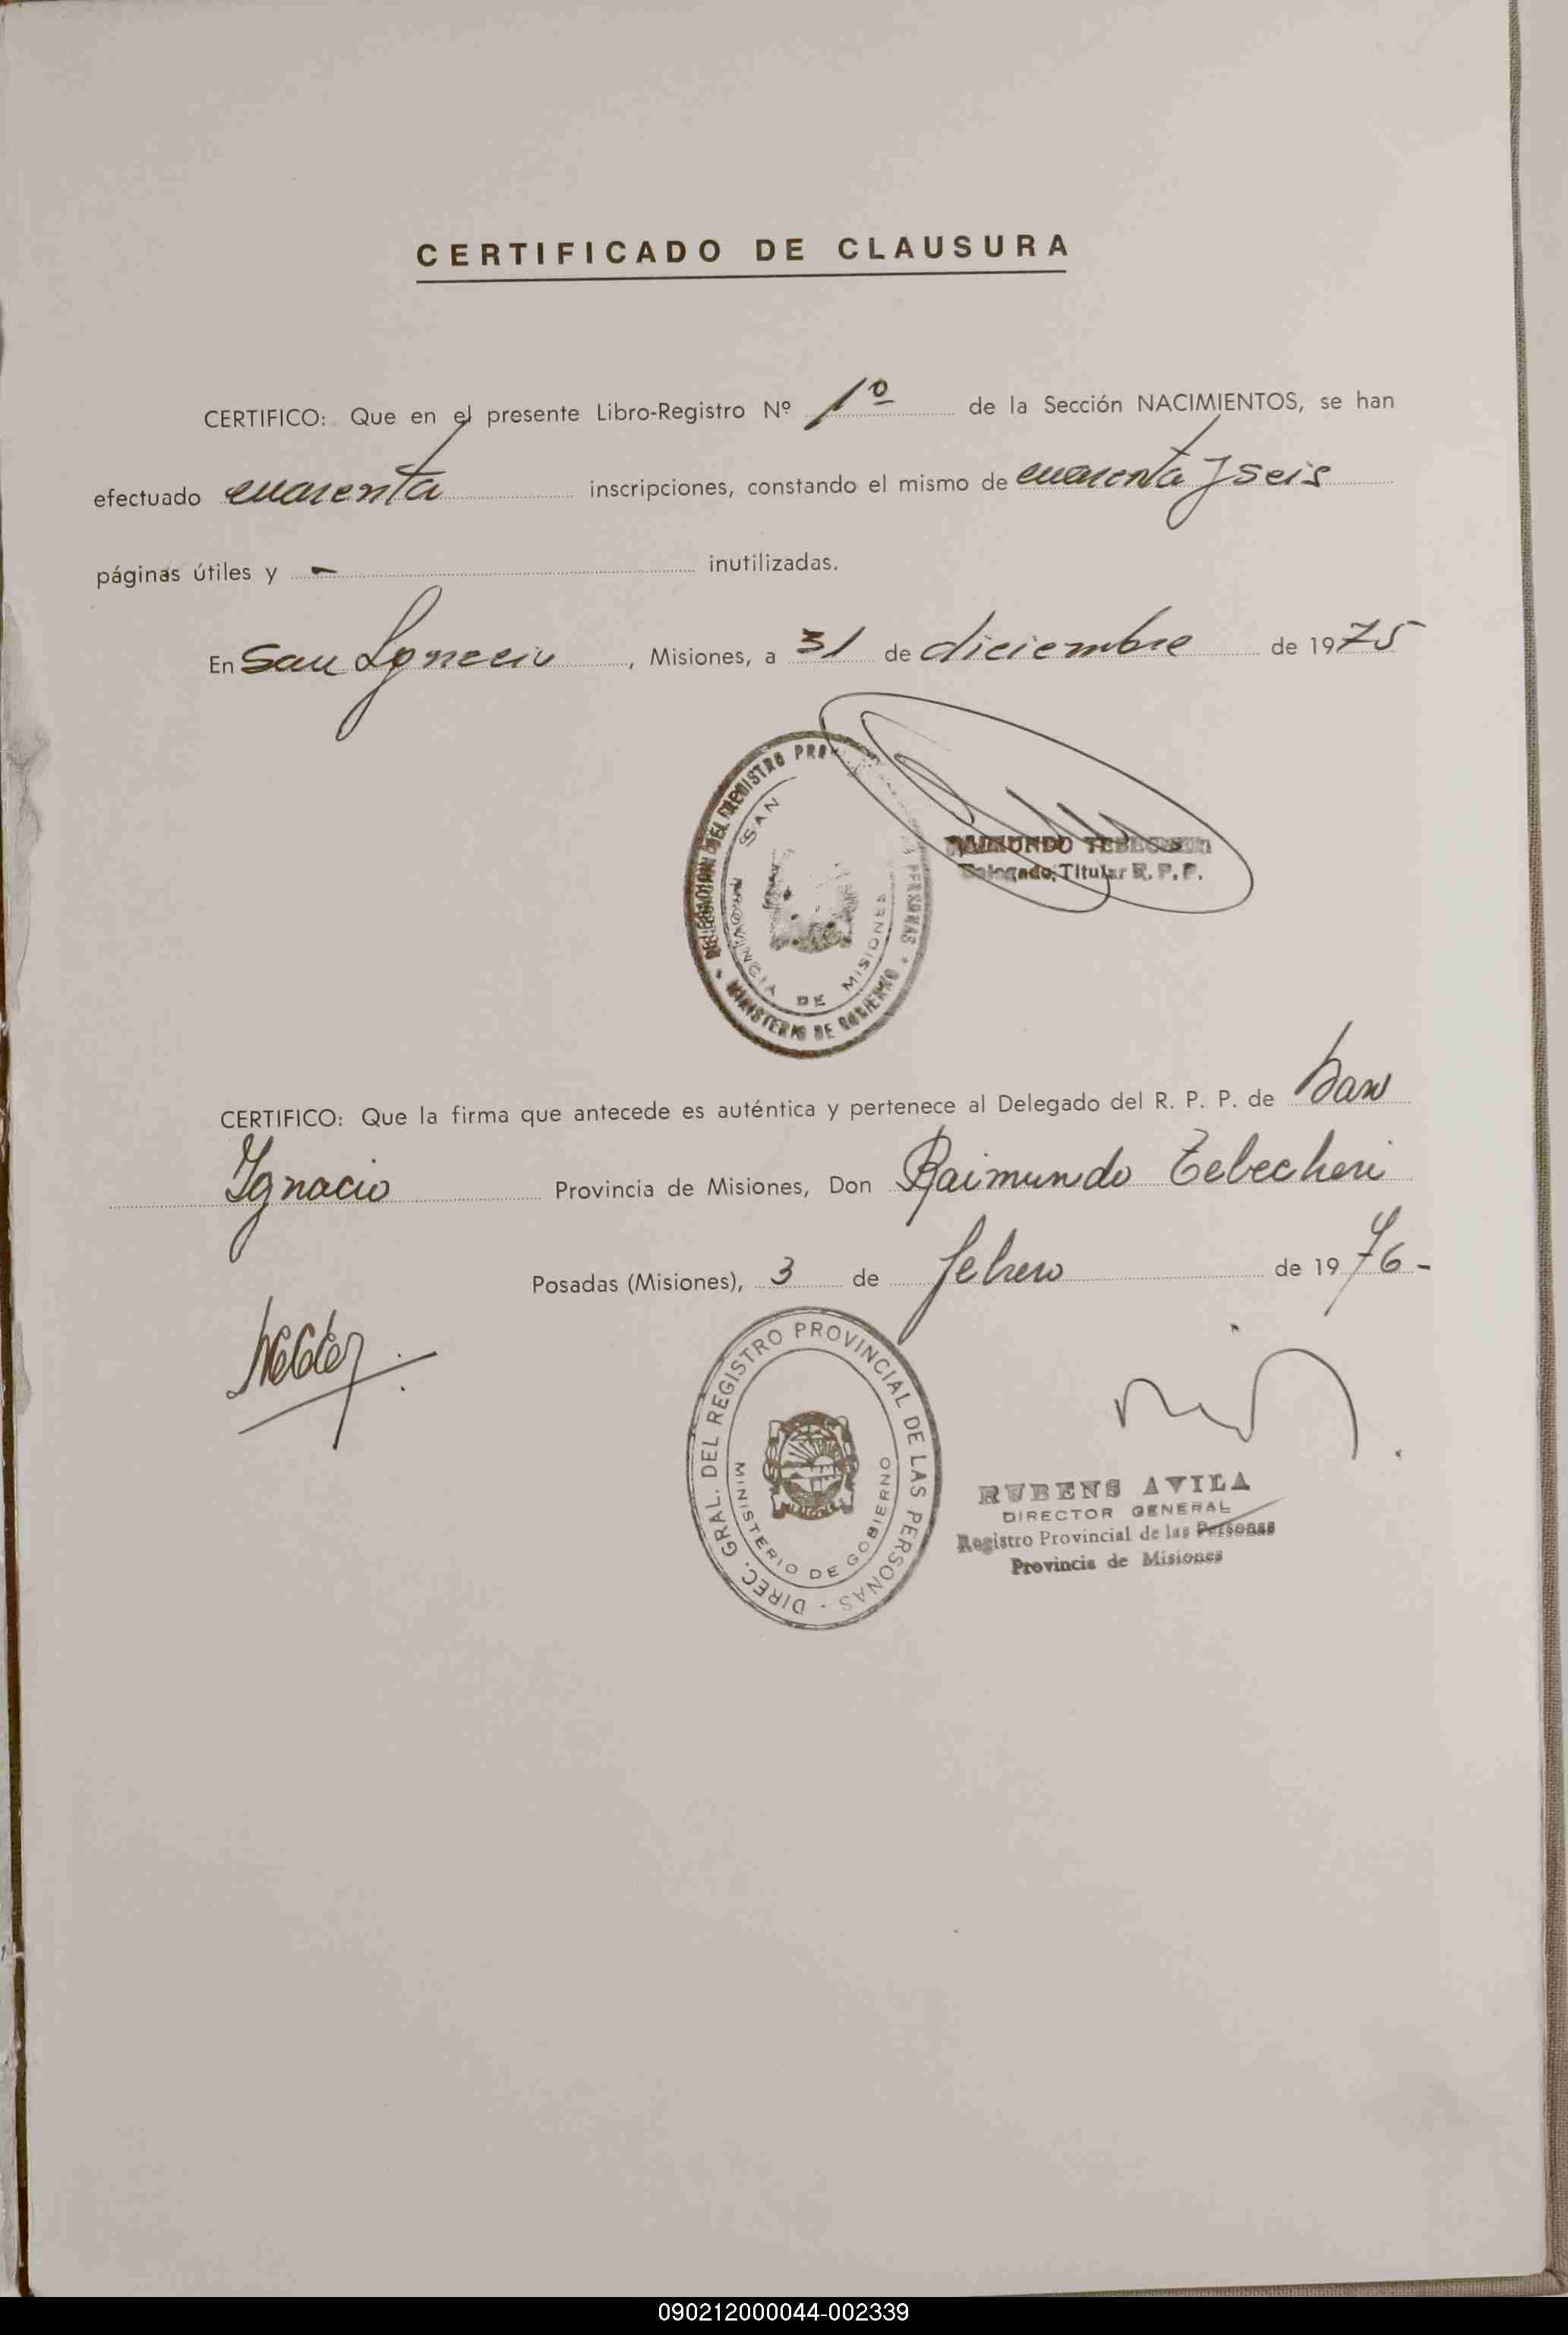 CERTIFICADO DE CLAUSURA
CERTIFICO: Que en el presente Libro-Registro Nº 1º de la Sección NACIMIENTOS, se han
efectuado cuarenta inscripciones, constando el mismo de cuarenta y seis
páginas útiles y - inutilizadas.
En San Ignacio, Misiones, a 31 de diciembre de 1975
DELEGACION DEL REGISTRO PERSONAS - MINISTERIO DE GOBIERNO
SAN
PROVINCIA DE MISIONES
RAIMUNDO
Delegado Titular R. P. P.
CERTIFICO: Que la firma que antecede es auténtica y pertenece al Delegado del R. P. P. de San
Ignacio Provincia de Misiones, Don Raimundo Tebecheri
Posadas (Misiones), 3 de febrero de 1976-
DIREC. GRAL. DEL REGISTRO PROVINCIAL DE LAS PERSONAS -
MINISTERIO DE GOBIERNO
RUBENS AVILA
DIRECTOR GENERAL
Registro Provincial de las Personas
Provincia de Misiones
090212000044-002339